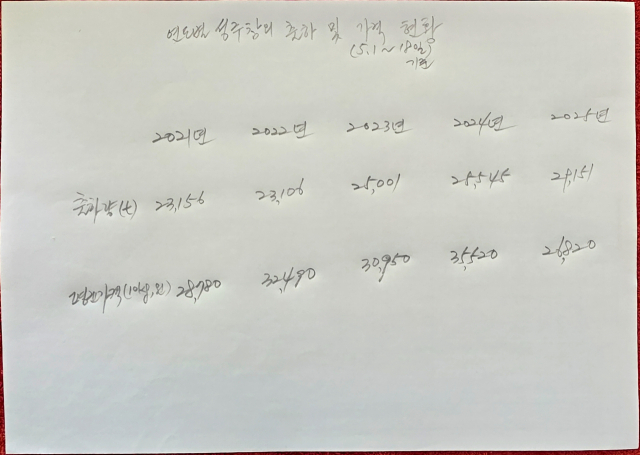 연도별 성주참외 출하 및 가격 현황
(5.1~18일)
기준
2021년 2022년 2023년 2024년 2025년
출하량(t) 23,156 23,106 25,001 25,545 29,151
평균가격(10kg, 원) 28,980 32,490 30,950 35,520 26,820